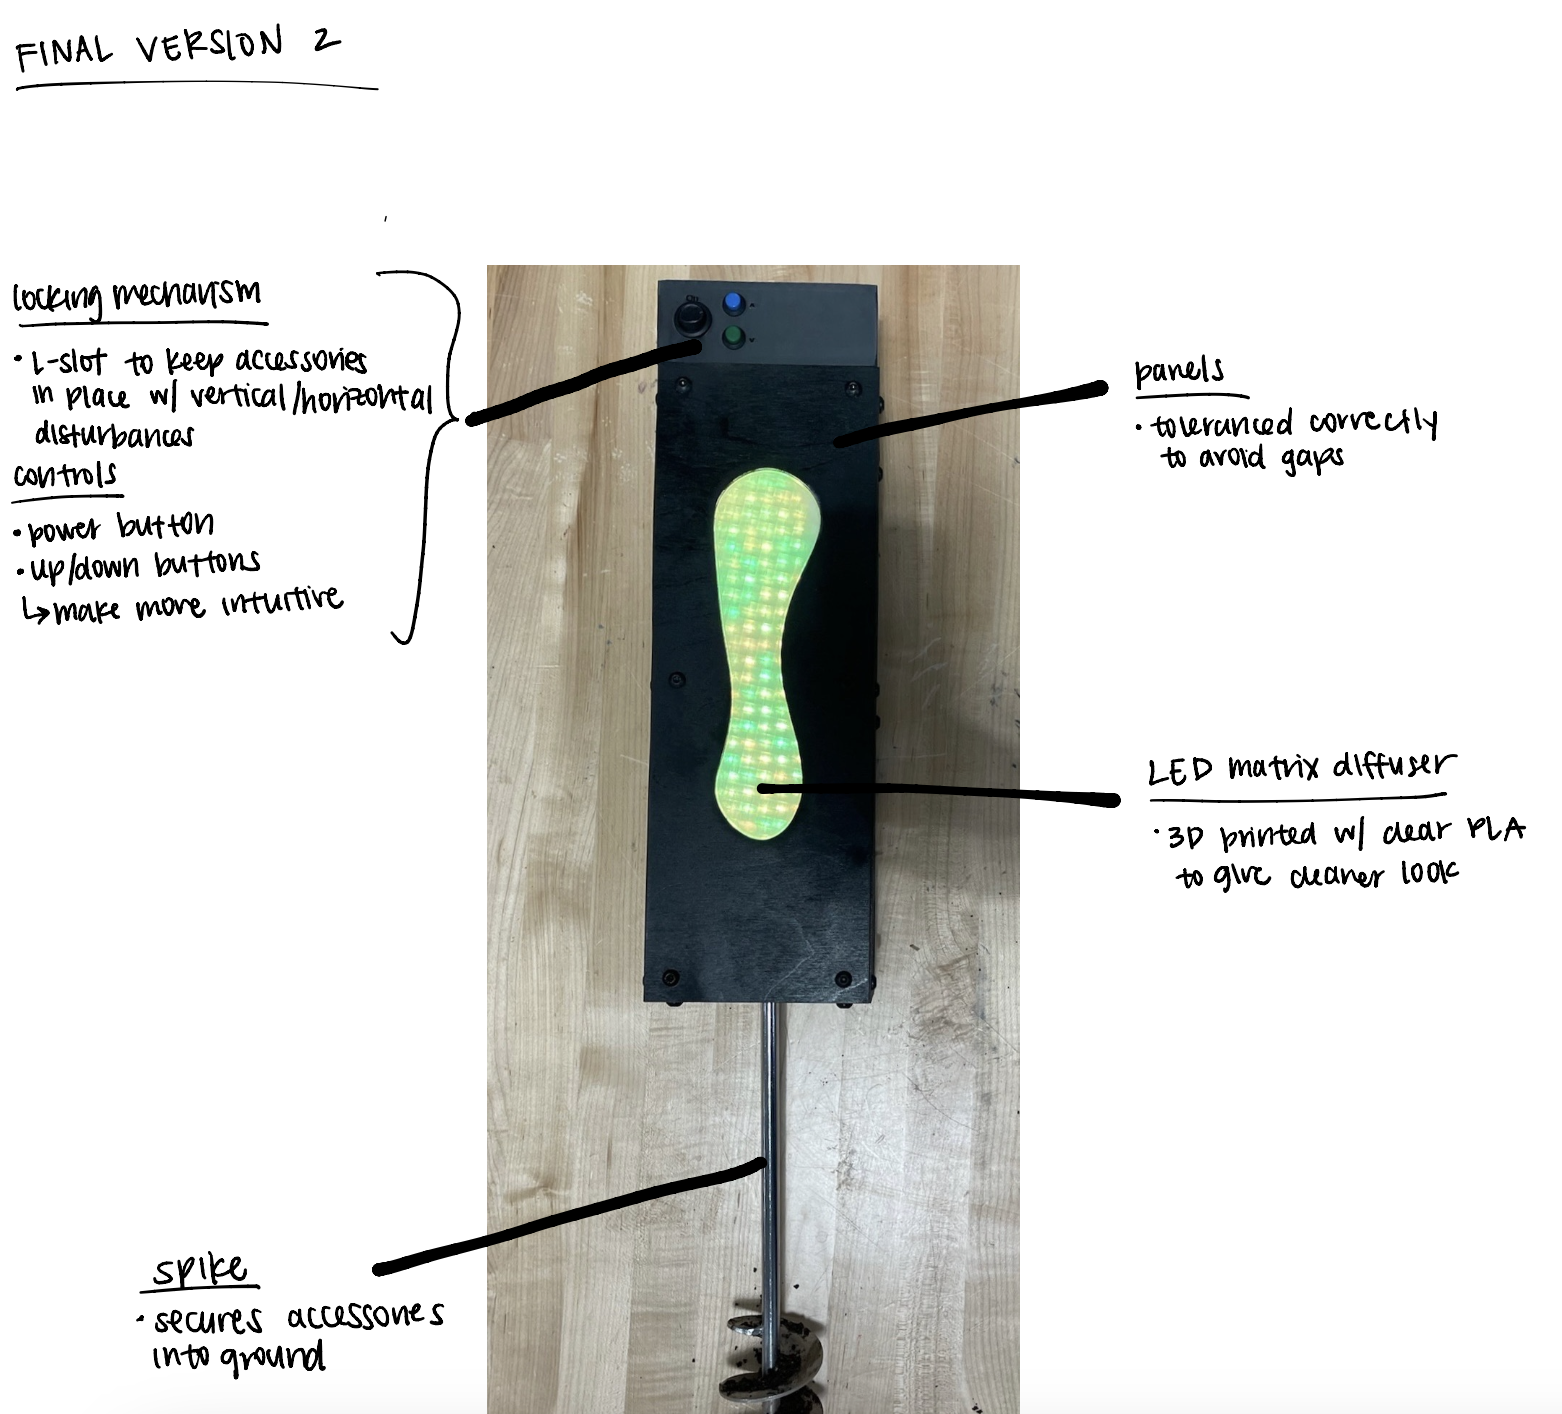 FINAL VERSION 2
locking mechanism
• L-slot to keep accessories
in place w/ vertical/horizontal
disturbances
controls
• power button
• up/down buttons
↳ make more intuitive
ON
panels
• toleranced correctly
to avoid gaps
LED matrix diffuser
• 3D printed w/ clear PLA
to give cleaner look
spike
• secures accessories
into ground